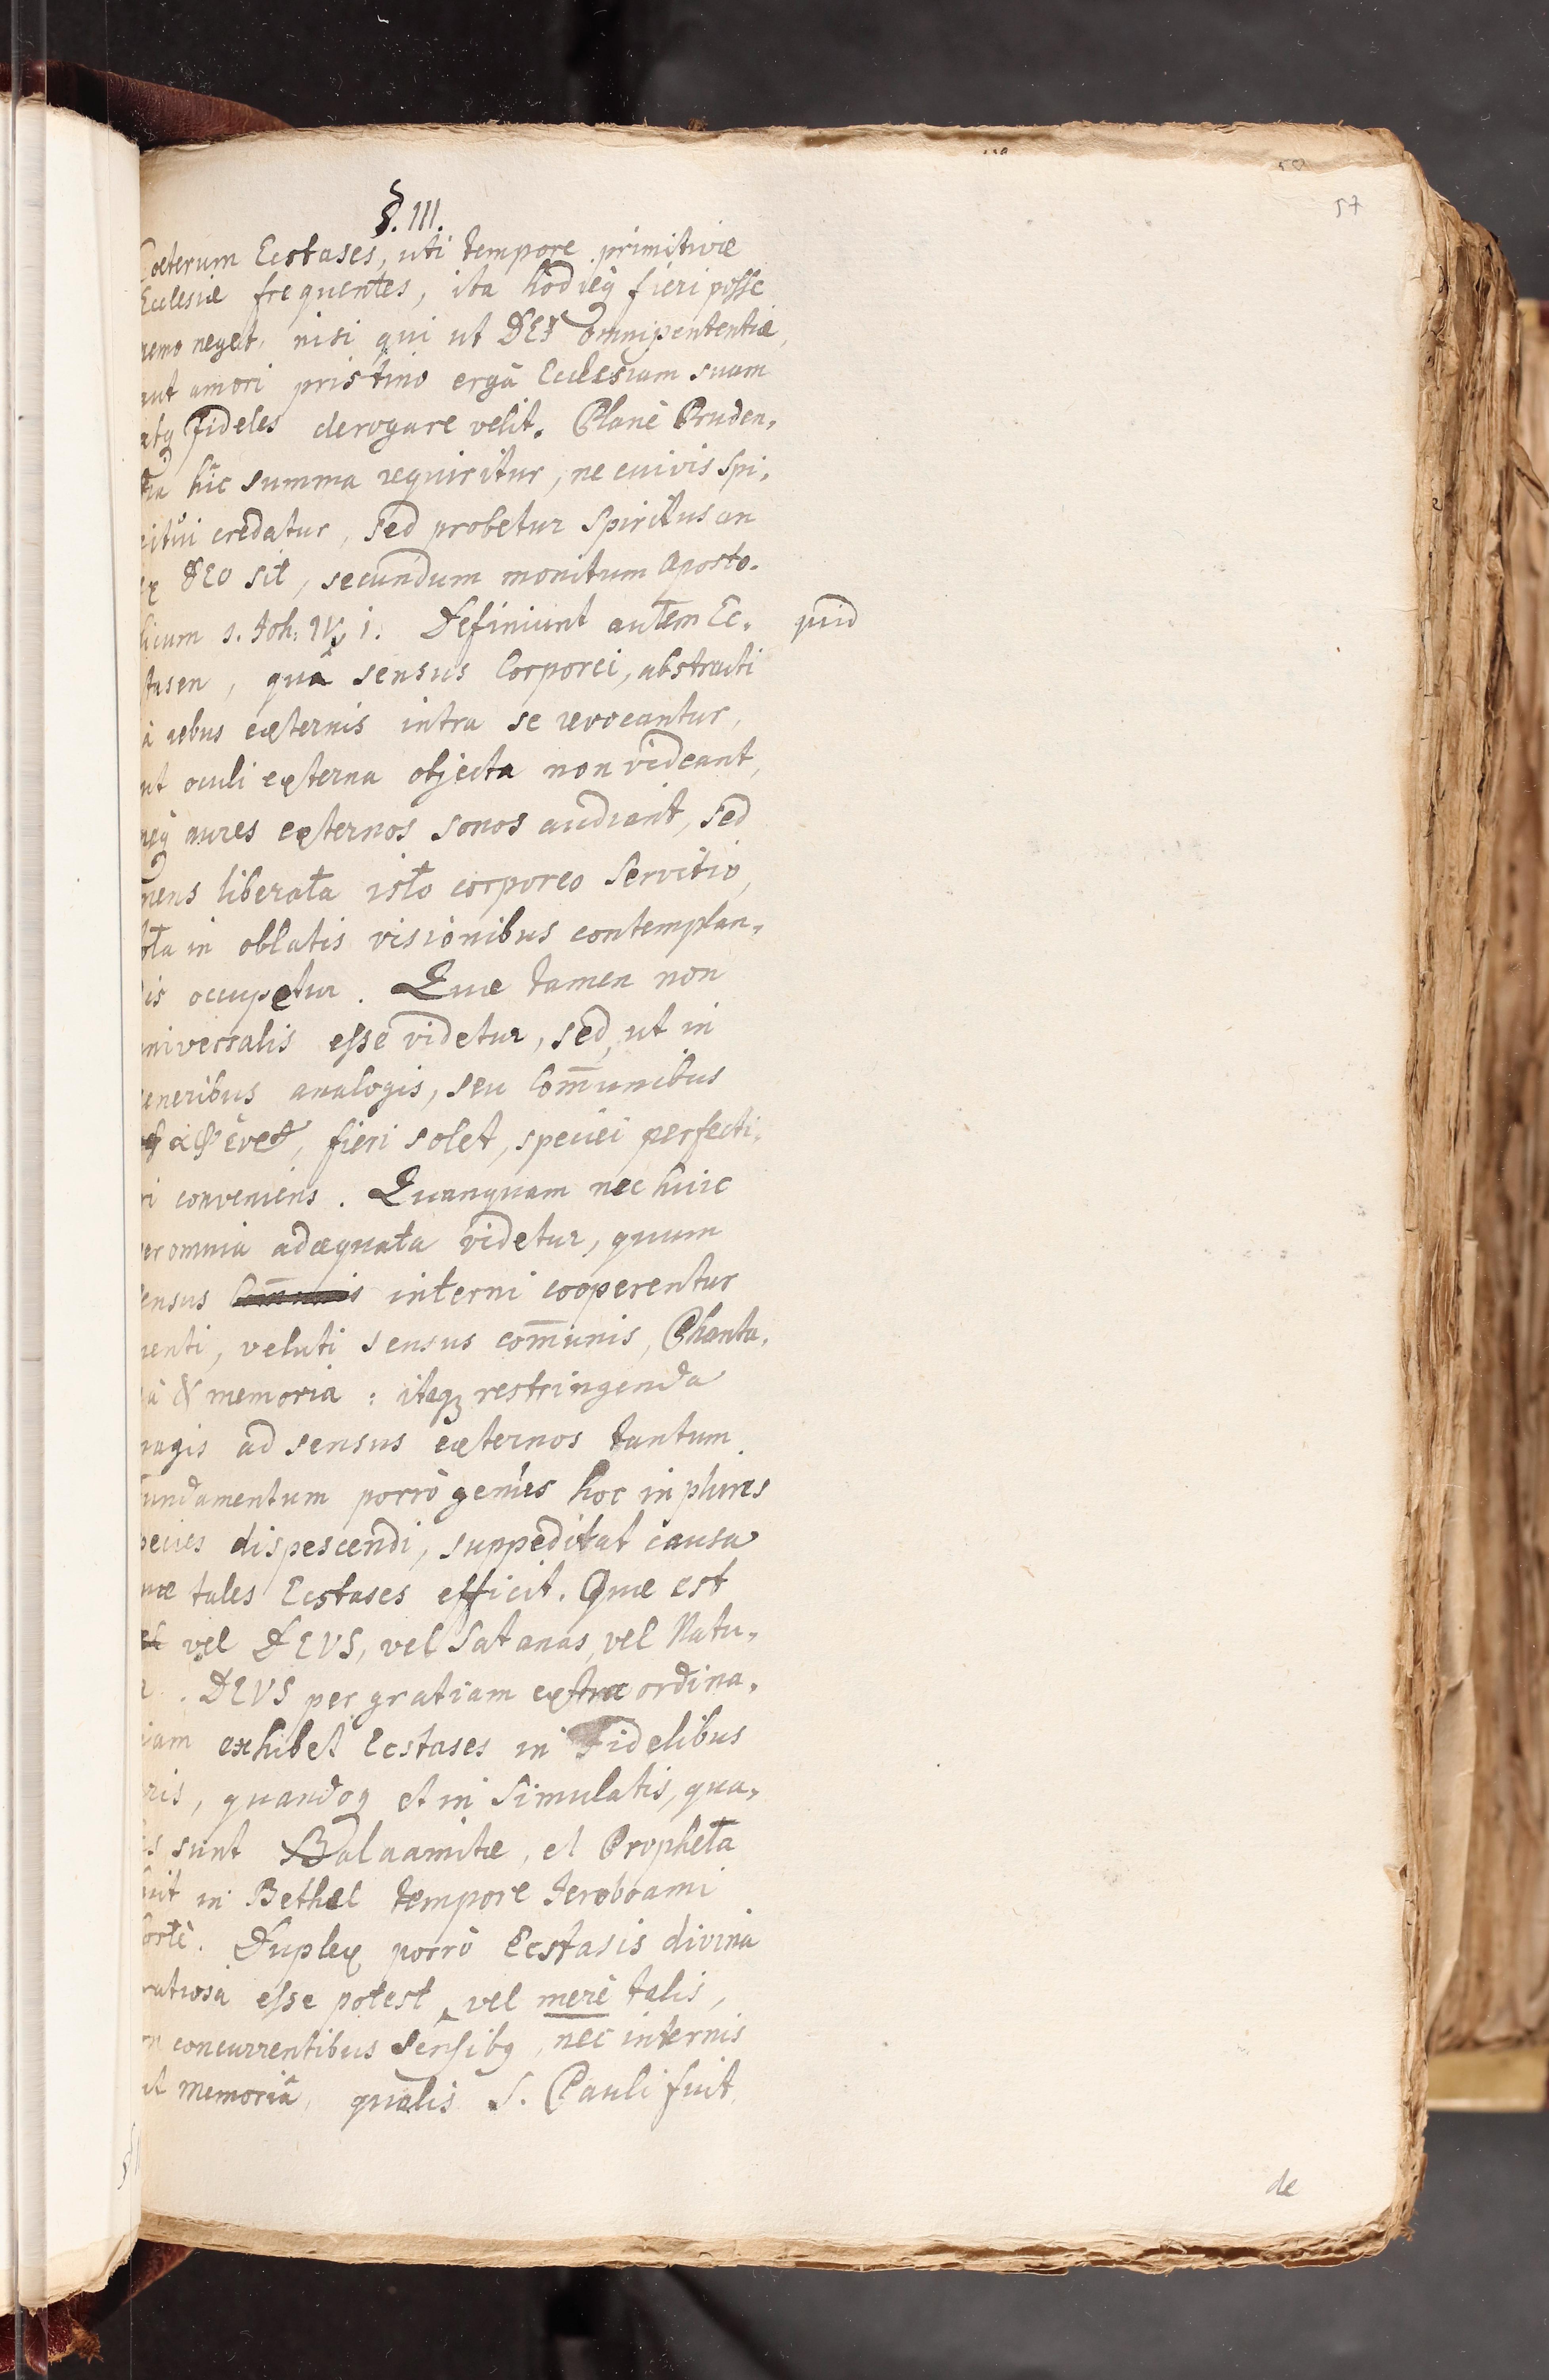 57
§. III.
Coeterum Ecstases, uti tempore primitivæ
Ecclesiæ frequentes, ita hodieq fieri posse
nemo neget, nisi qui ut DEI omnipententiæ,
aut amori pristino ergà Ecclesiam suam
atq Fideles derogare velit. Planè Pruden-
tia hîc summa requiritur, ne cuivis Spi-
ritui credatur, sed probetur Spiritus an
ex DEO sit, secundum monitum Aposto-
licum 1. Joh: IV, 1. Definiunt autem Ec- quid
stasen, quâ sensus Corporei, abstracti
à rebus externis intra se revocantur,
ut oculi externa objecta non videant,
neq aures externos sonos audiant, sed
mens liberata isto corporeo servitio,
tota in oblatis visionibus contemplan-
dis occupetur. Quæ tamen non
universalis esse videtur, sed, ut in
generibus analogis, seu Com̄unibus
fieri solet, speciei perfecti-
ri conveniens. Quanquam nec huic
per omnia adæquata videtur, quum
sensus interni cooperentur
menti, veluti sensus com̄unis, Phanta-
sia & memoria: itaq restringenda
magis ad sensus externos tantum.
Fundamentum porrò genus hoc in plures
species dispescendi, suppeditat causa
quæ tales Ecstases efficit. Quæ est
vel DEUS, vel Satanas, vel Natu-
ra. DEVS per gratiam extra ordina-
riam exhibet Ecstases in Fidelibus
veris, quandoq et in Simulatis, qua-
les sunt Balaamitæ, et Propheta
fuit in Bethel tempore Jeroboami
fortè. Duplex porrò Ecstasis divina
gratiosa esse potest, vel merè talis,
non concurrentibus sensibq, nec internis
ut memoriâ, qualis S. Pauli fuit.
de